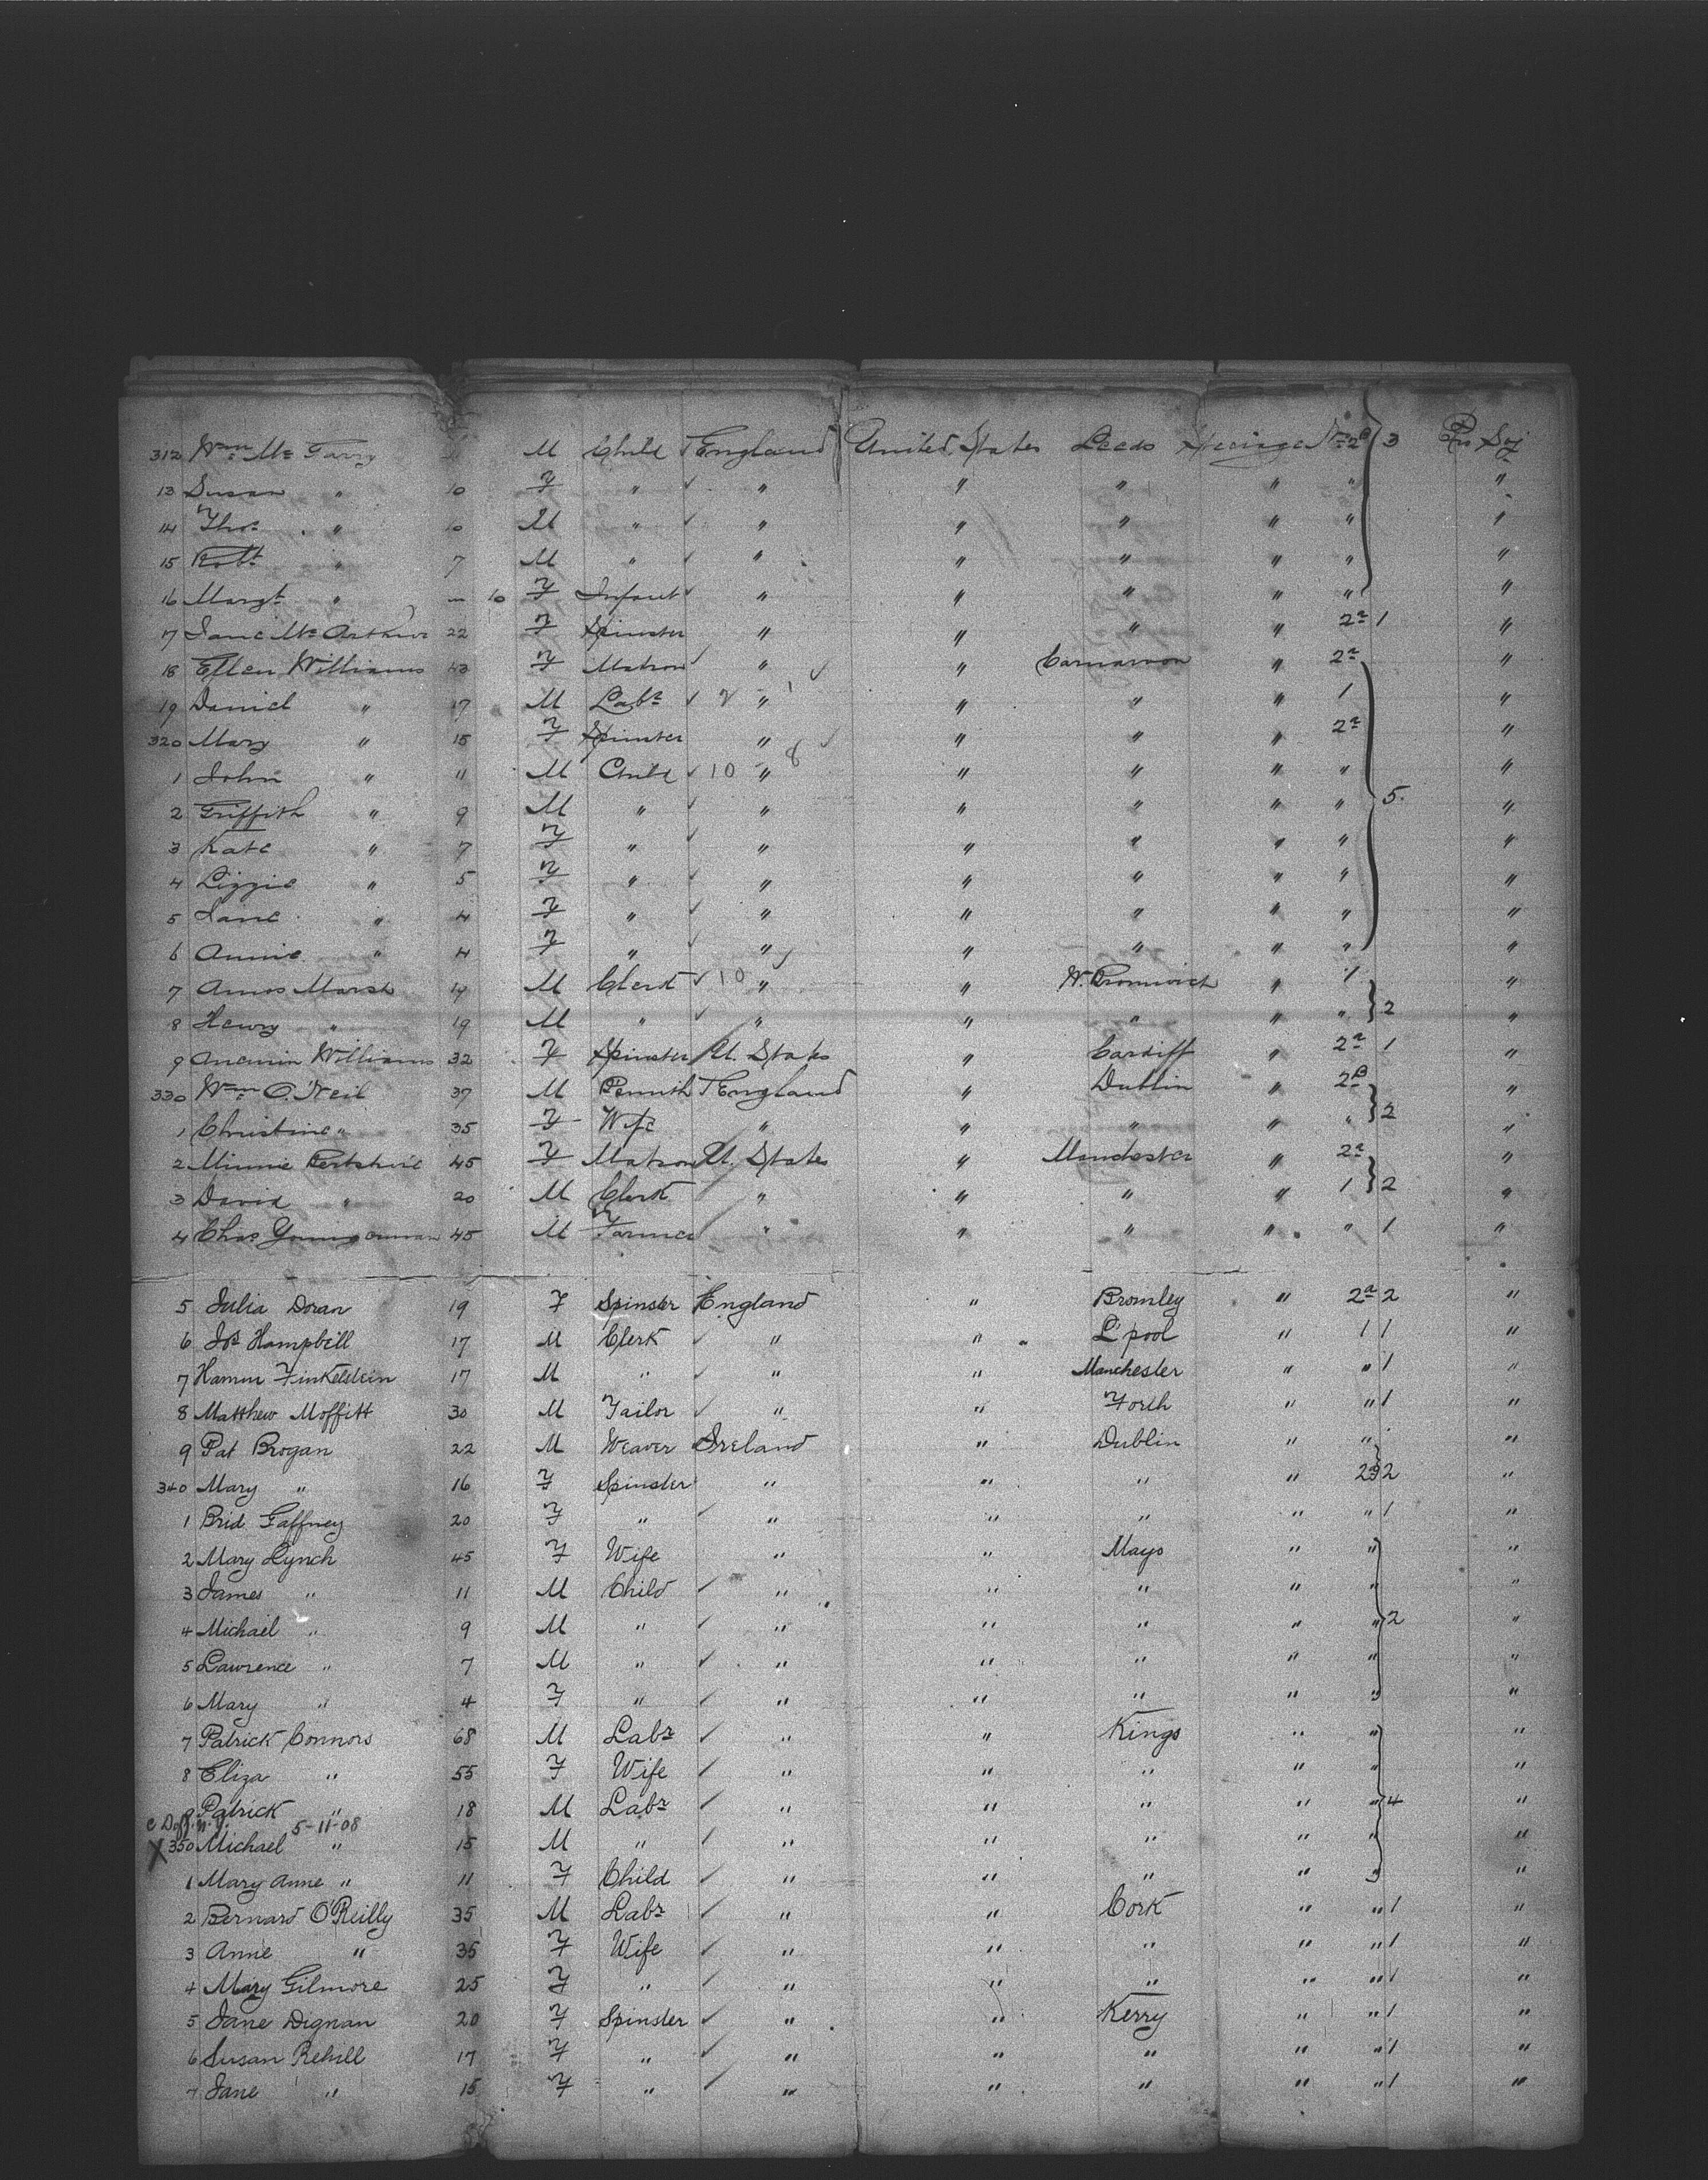 312 Wm Mc Garry M Child England United States Leeds Steerage No 2B 3 Pro Soj
13 Susan " 10 F " " " " " " "
14 Thos " 10 M " " " " " " "
15 Robt " 7 M " " " " " " "
16 Margt " — 10 F Infant " " " " " "
17 Jane Mc Arthur 22 F Spinster " " " " 2a 1 "
18 Ellen Williams 43 F Matron " " Carnarvon " 2a "
19 Daniel " 17 M Labr " " " " 1 "
320 Mary " 15 F Spinster " " " " 2a "
1 John " 11 M Child 10 " 8 " " " " "
2 Griffith " 9 M " " " " " " 5. "
3 Kate " 7 F " " " " " " "
4 Lizzie " 5 F " " " " " " "
5 Jane " 4 F " " " " " " "
6 Annie " 4 F " " " " " " "
7 Amos Marsh 14 M Clerk 10 " " W. Bromwich " 1 "
8 Henry " 19 M " " " " " " 2 "
9 Williams 32 F Spinster U. States " Cardiff " 2a 1 "
330 Wm O'Neil 37 M England " Dublin " 2B "
1 Christine " 35 F Wife " " " " " 2 "
2 Minnie 45 F Matron U. States " Manchester " 2a "
3 David " 20 M Clerk " " " " 1 2 "
4 Chas Youngerman 45 M Farmer " " " " " 1 "
5 Julia Doran 19 F Spinster England " Bromley " 2a 2 "
6 Jos Hampbell 17 M Clerk " " L'pool " 1 1 "
7 Finkelstein 17 M " " " Manchester " " 1 "
8 Matthew Moffitt 30 M Tailor " " Forth " " 1 "
9 Pat Brogan 22 M Weaver Ireland " Dublin " " "
340 Mary " 16 F Spinster " " " " 2a 2 "
1 Brid Gaffney 20 F " " " " " " 1 "
2 Mary Lynch 45 F Wife " " Mayo " " "
3 James " 11 M Child " " " " " "
4 Michael " 9 M " " " " " " 2 "
5 Lawrence " 7 M " " " " " " "
6 Mary " 4 F " " " " " " "
7 Patrick Connors 68 M Labr " " Kings " " "
8 Eliza " 55 F Wife " " " " " "
9 Patrick " 18 M Labr " " " " " 4 "
5-11-08
X 350 Michael " 15 M " " " " " " "
1 Mary Anne " 11 F Child " " " " " "
2 Bernard O'Reilly 35 M Labr " " Cork " " 1 "
3 Anne " 35 F Wife " " " " " 1 "
4 Mary Gilmore 25 F " " " " " " 1 "
5 Jane Dignan 20 F Spinster " " Kerry " " 1 "
6 Susan Rehill 17 F " " " " " " 1 "
7 Jane " 15 F " " " " " " 1 "